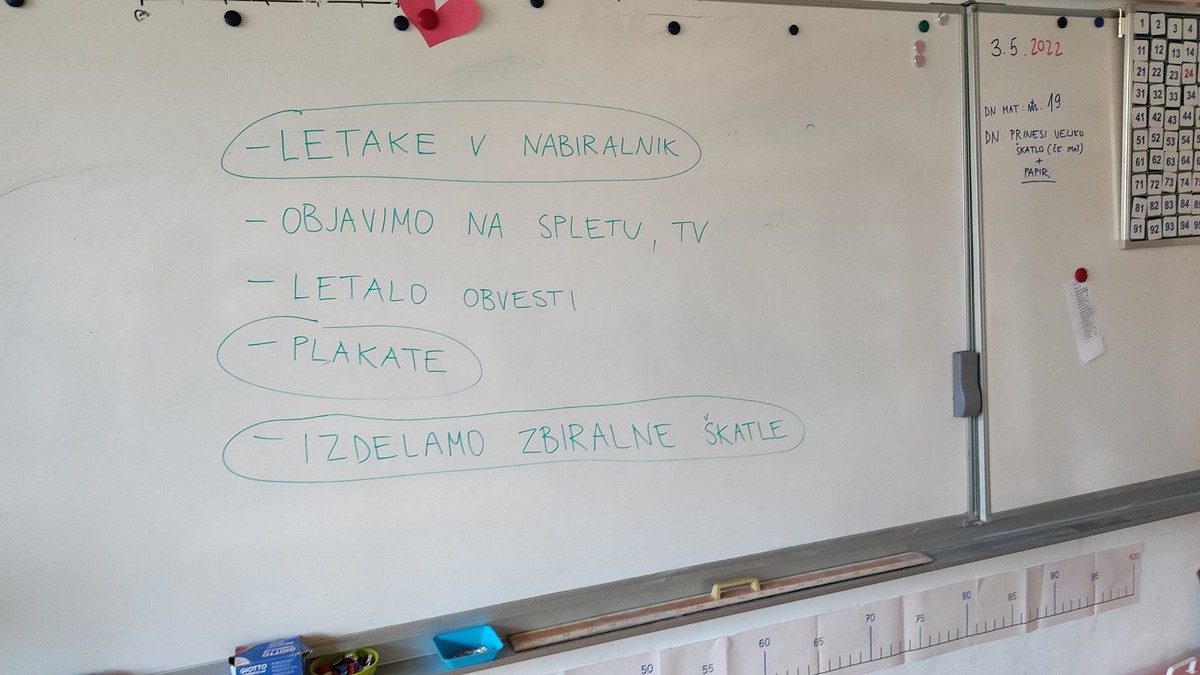 - LETAKE V NABIRALNIK
- OBJAVIMO NA SPLETU, TV
- LETALO OBVESTI
- PLAKATE
- IZDELAMO ZBIRALNE ŠKATLE
3.5.2022
DN MAT: 19
DN: PRINESI VELIKO
ŠKATLO (ČE IMAŠ)
+
PAPIR
1 2 3 4
11 12 13 14
21 22 23 24
31 32 33 34
41 42 43 44
51 52 53 54
61 62 63 64
71 72 73 74
81 82 83 84
91 92 93 94
GIOTTO
GIOTTO
50 55 60 65 70 75 80 85 90 95 100